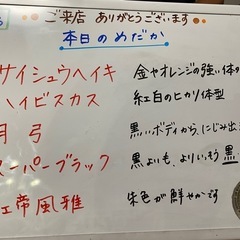 ご来店 ありがとうございます
本日のめだか
サイシュウヘイキ 金やオレンジの強い体の
ハイビスカス 紅白のヒカリ体型
月弓 黒いボディから、にじみ出
スーパーブラック 黒よいも、よりいっそう黒
紅帝風雅 朱色が鮮やかです